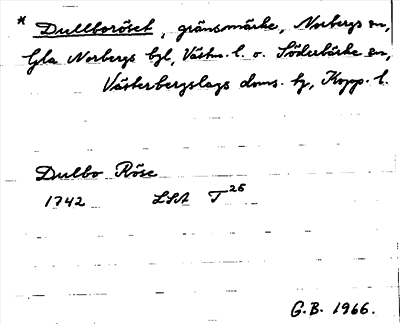 * Dullboröset, gränsmärke, Norbergs sn,
Gla Norbergs bgl, Västm. l. o. Söderbärke sn,
Västerbergslags doms. hg, Kopp. l.
Dulbo Röse
1742 LSA T 26
G.B. 1966.